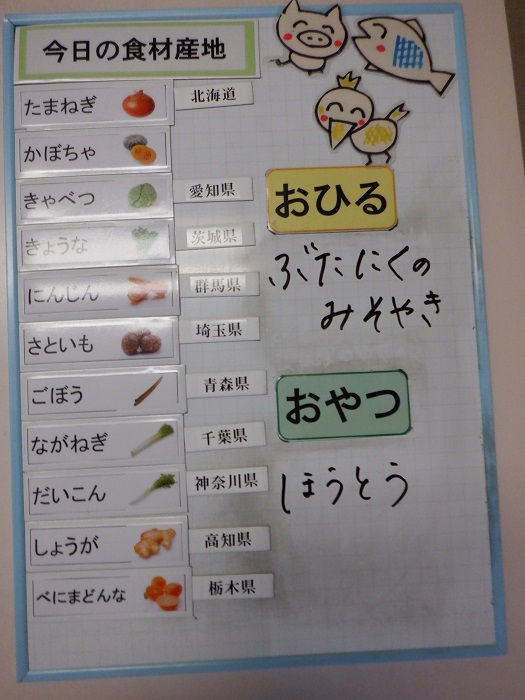 今日の食材産地
たまねぎ 北海道
かぼちゃ
きゃべつ 愛知県
きょうな 茨城県
にんじん 群馬県
さといも 埼玉県
ごぼう 青森県
ながねぎ 千葉県
だいこん 神奈川県
しょうが 高知県
べにまどんな 栃木県
おひる
ぶたにくの
みそやき
おやつ
ほうとう